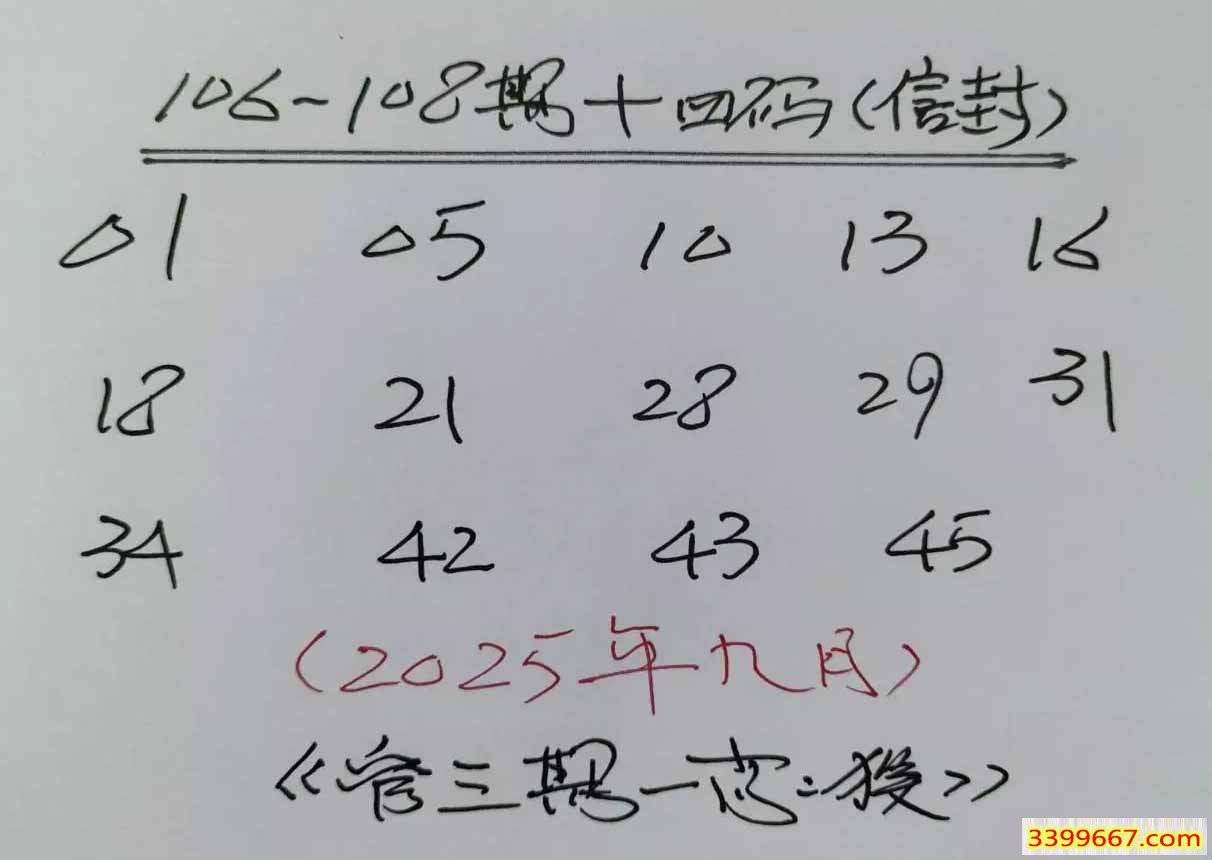 106-108期十四码(信封)
01 05 10 13 16
18 21 28 29 31
34 42 43 45
(2025年九月)
《管三期一
3399667.com